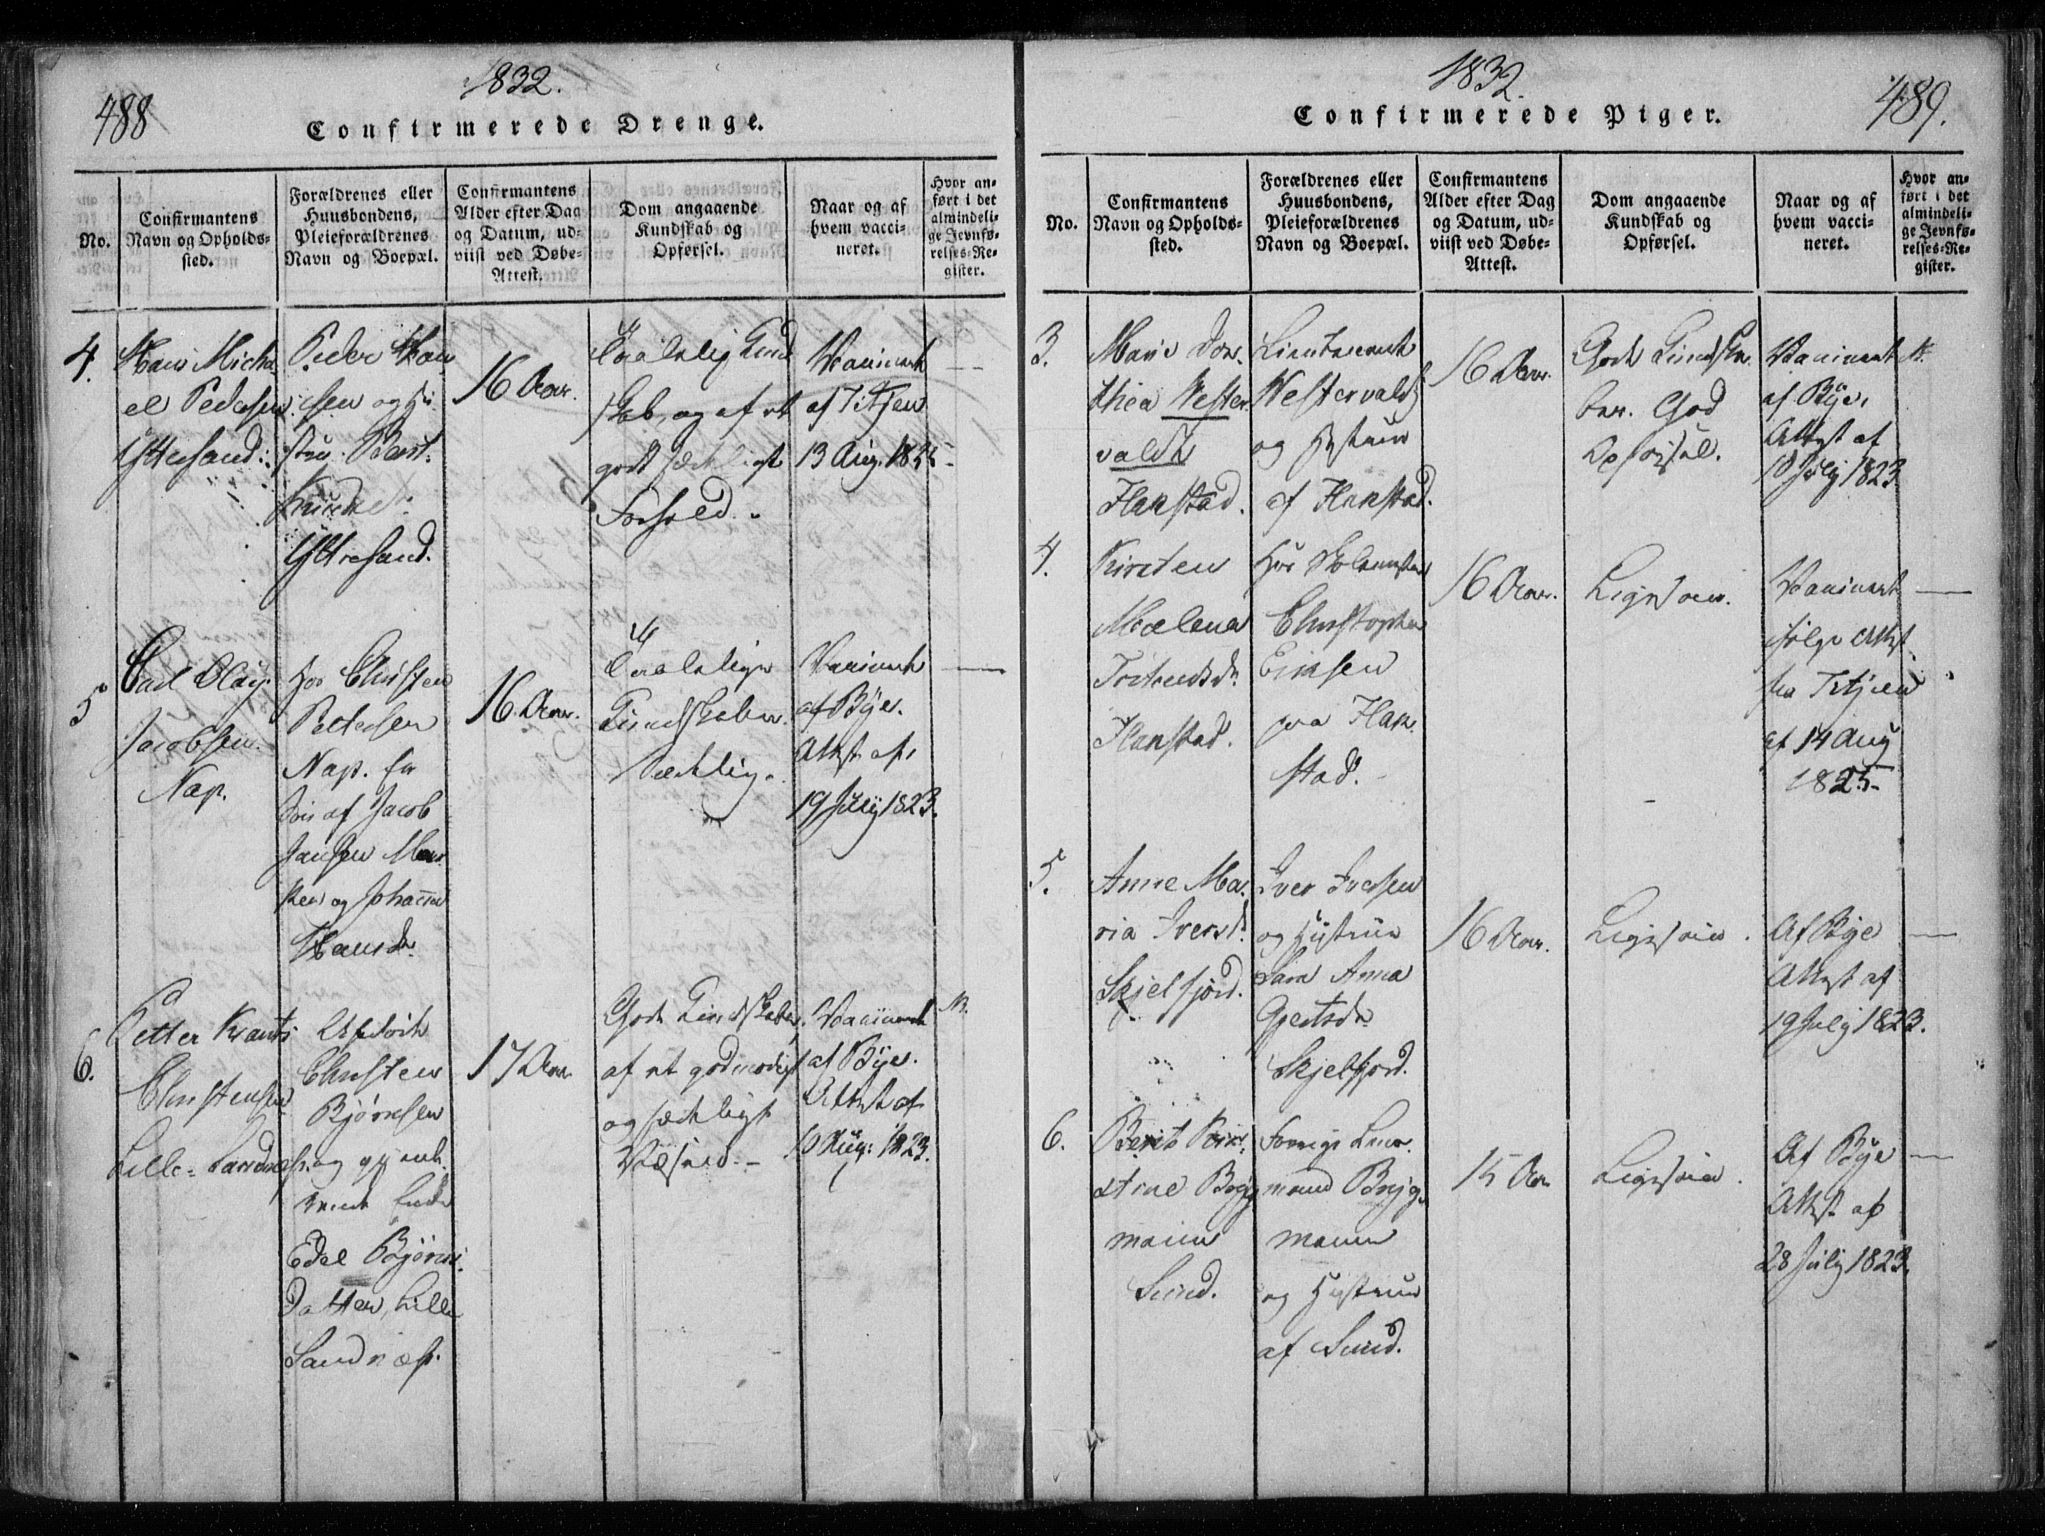 488
1832.
Confirmerede Drenge.
No.
Confirmantens Navn og Opholds-sted.
Forældrenes eller Huusbondens, Pleieforældrenes Navn og Boepæl.
Confirmantens Alder efter Dag og Datum, ud-viist ved Døbe-Attest.
Dom angaaende Kundskab og Opførsel.
Naar og af hvem vacci-neret.
Hvor an-ført i det almindeli-ge Jevnfø-relses-Re-gister.
4.
Hans Micha
el Pedersen
Yttresand.
Peder Han
sen og Hu
stru Berit
Yttresand.
16 Aar.
Taalelig Kund
skab, og af et
godt sædeligt
Forhold.
Vaccineret
af Titjen
13 Aug. 1825
5
Carl Olai
Jacobsen
Nap.
Hos Christen
Pettersen
Nap. for
Søn af Jacob
Jansen
og Johanna
Hansdr.
16 Aar.
Taalelige
Kundskaber.
Sædelig.
Vaccineret
af Bye.
Attest af
19 July 1823.
6.
Petter Krants
Christensen
Lille-Sandnæs.
Christen
Bjørnsen
og
Edel Bjørns
Datter, Lille
Sandnæs.
17 Aar
Gode Kundskaber
af et godmodigt
og sædeligt
Væsen.
Vaccineret
af Bye.
Attest af
10 Aug: 1823.
1832.
489.
Confirmerede Piger.
No.
Confirmantens Navn og Opholds-sted.
Forældrenes eller Huusbondens, Pleieforældrenes Navn og Boepæl.
Confirmantens Alder efter Dag og Datum, ud-viist ved Døbe-Attest.
Dom angaaende Kundskab og Opførsel.
Naar og af hvem vacci-neret.
Hvor an-ført i det almindeli-ge Jevnfø-relses-Re-gister.
3.
Marie Dor
thea Wester
valdt
Flakstad.
Lieutenant
Westervaldt
og Hustrue
af Flakstad.
16 Aar.
Gode Kundska
ber. God
Opførsel.
Vaccineret
af Bye,
Attest af
18 July 1823
4.
Kirsten
Malena
Flakstad.
Hos
Christopher
Eriksen
paa Flak
stad.
16 Aar.
Ligesom.
Vaccineret
følge Attest
fra Titjen
af 14 Aug
1825
5.
Anne Ma
ria Iversd.
Skjelfjord.
Iver Iversen
og Hustrue
Sara Anna
Gjertsdr.
Skjelfjord.
16 Aar.
Ligesom.
Af Bye
Attest af
19 July 1823.
6.
Berit Kir
stine Bryg
mann
Sund.
Forrige Lens
mand Bryg
mann
og Hustrue
af Sund.
15 Aar
Ligesom.
Af Bye
Attest af
28 July 1823.